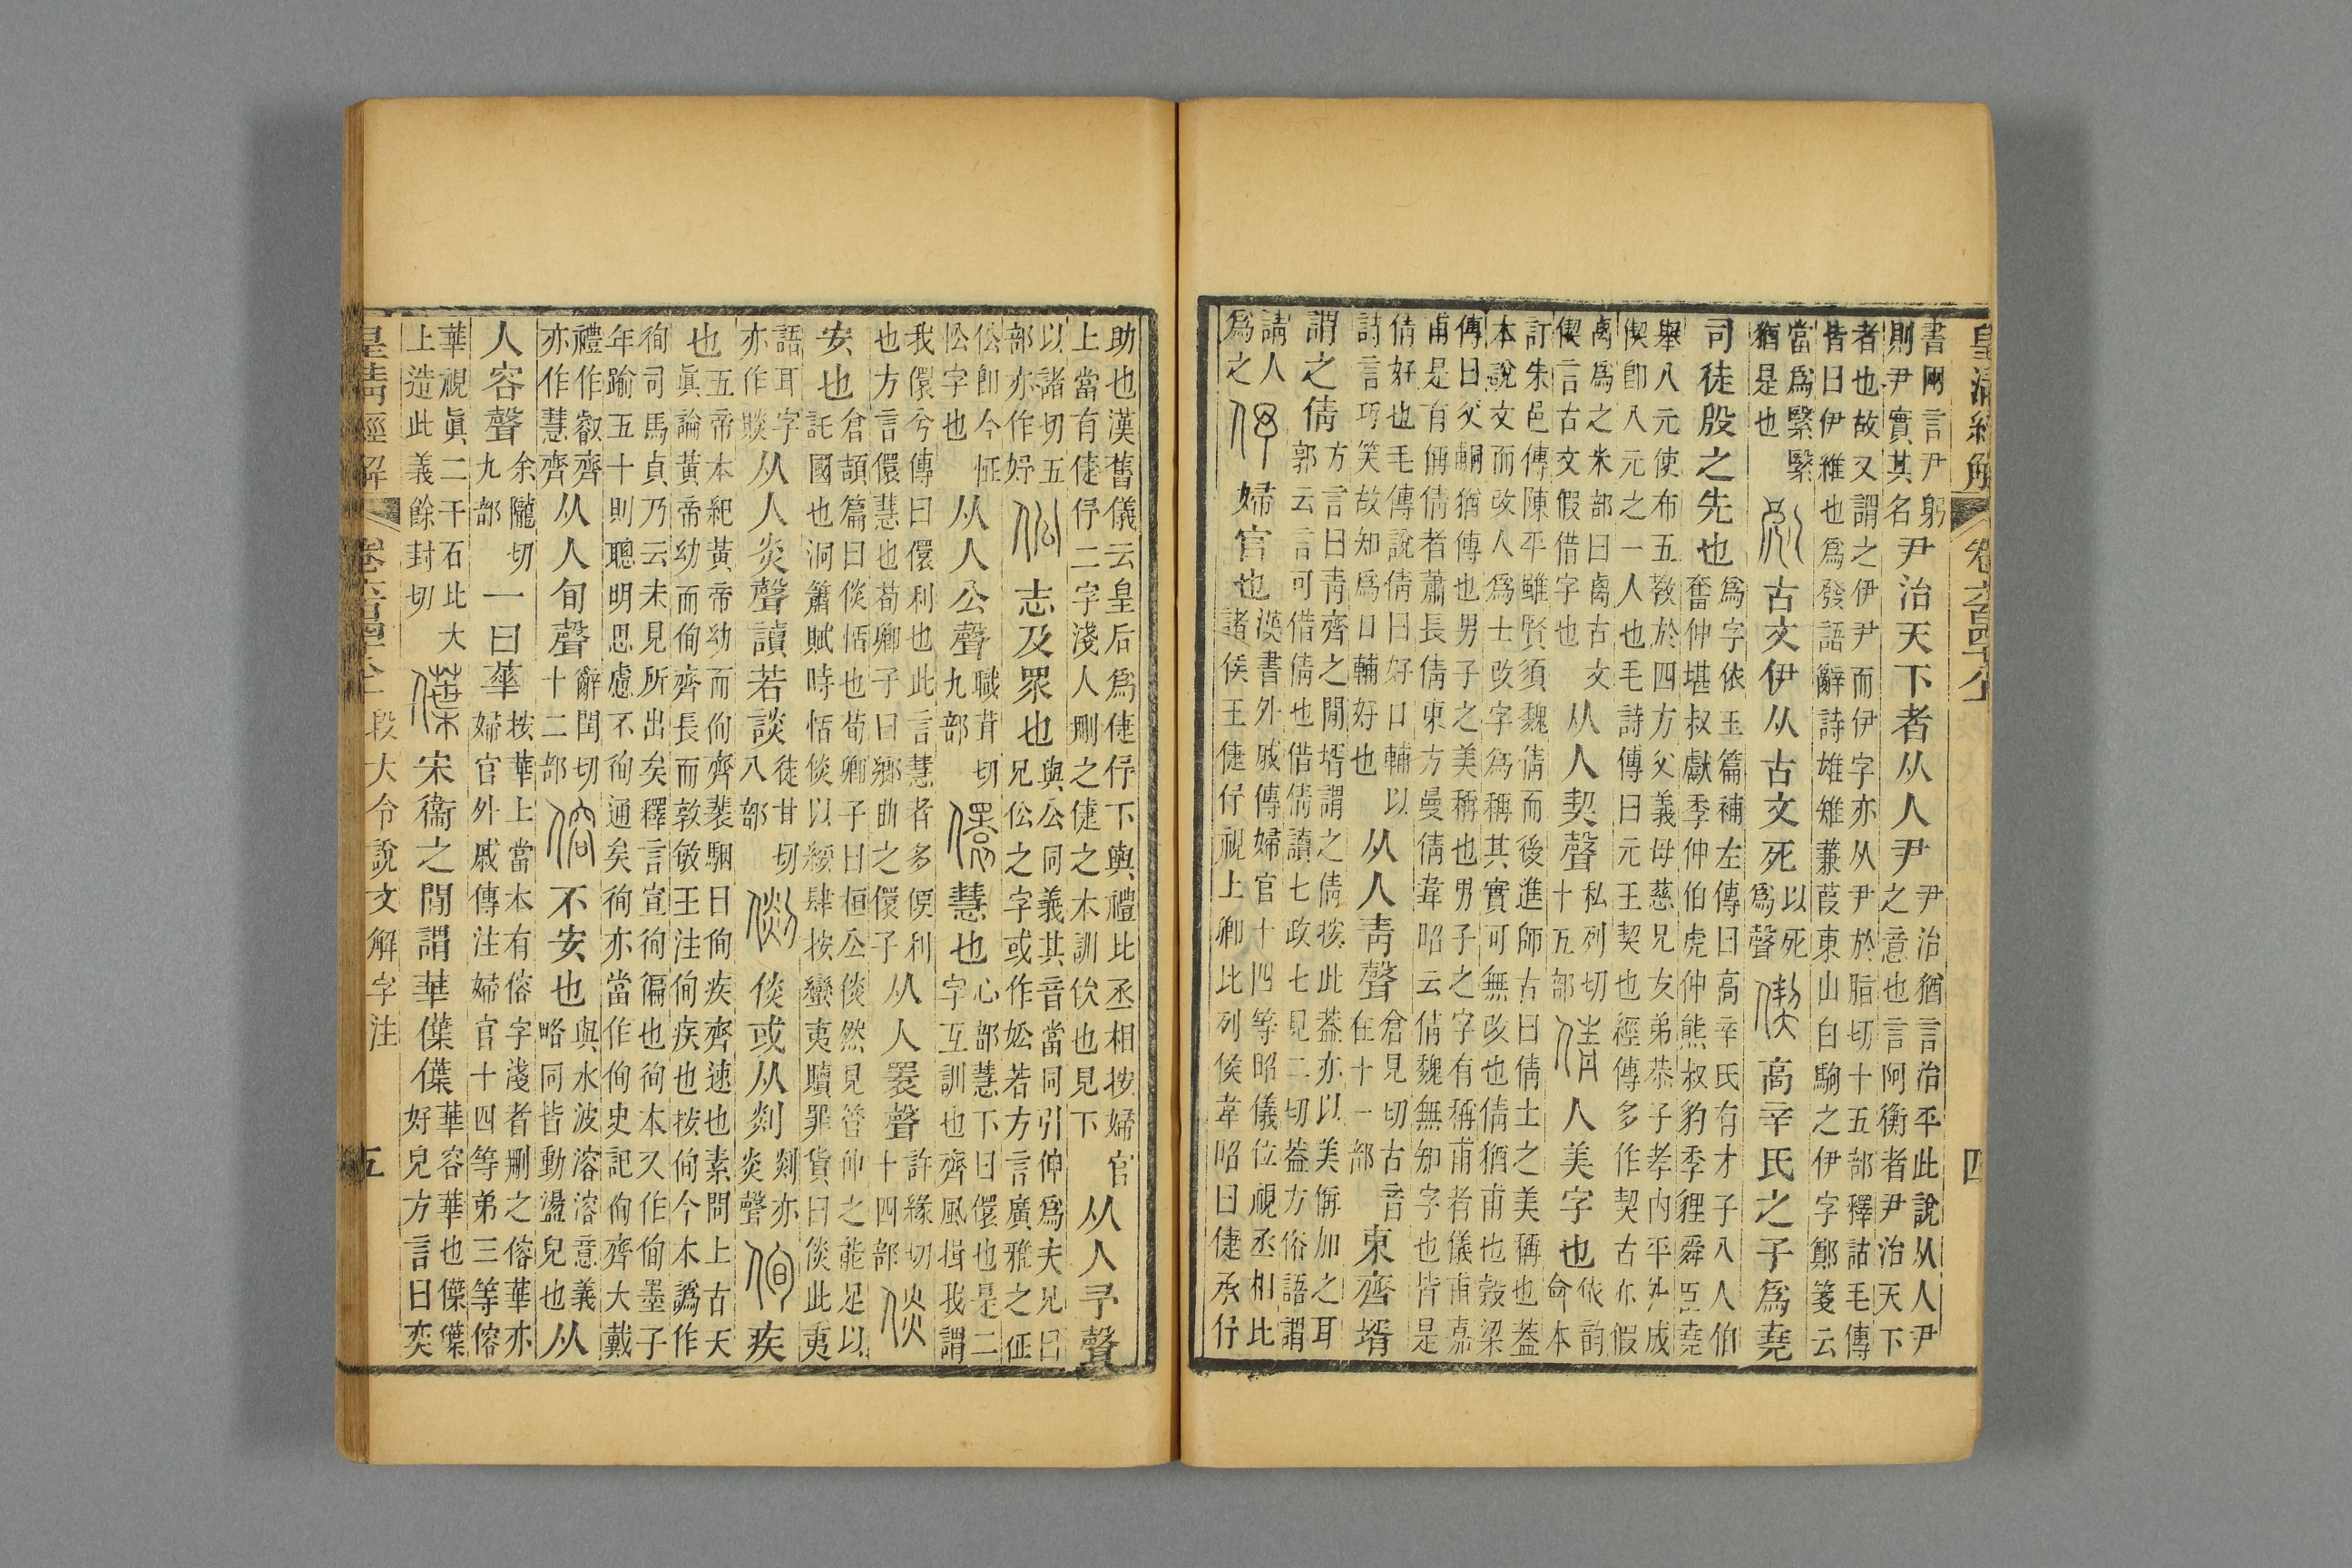 皇清經解 卷六百四十八上 四
書兩言尹躬
則尹實其名
尹治天下者从人尹
尹治猶言治平此說从人尹
之意也言阿衡者尹治天下
者也故又謂之伊尹而伊字亦从尹於脂切十五部釋詁毛傳
皆曰伊維也爲發語辭詩雄雉蒹葭東山白駒之伊字鄭箋云
當爲繄繄
猶是也
古文伊从古文死
以死
爲聲
偰
高辛氏之子爲堯
司徒殷之先也
爲字依玉篇補左傳曰高辛氏有才子八人伯
奮仲堪叔獻季仲伯虎仲熊叔豹季貍舜臣堯
舉八元使布五敎於四方父義母慈兄友弟恭子孝內平外成
偰卽八元之一人也毛詩傳曰元王契也經傳多作契古亦假
禼爲之米部曰禼古文
偰言古文假借字也
从人契聲
私列切
十五部
倩
人美字也
依韵
命本
訂朱邑傳陳平雖賢須魏倩而後進師古曰倩士之美稱也蓋
本說文而改人爲士改字爲稱其實可無改也倩猶甫也榖梁
傳曰父猶傳也男子之美稱也男子之字有稱甫者儀甫嘉
甫是有偁倩者蕭長倩東方曼倩韋昭云倩魏無知字也皆是
倩好也毛傳說倩曰好口輔以
詩言巧笑故知爲口輔好也
从人靑聲
倉見切古音
在十一部
東齊壻
謂之倩
方言曰靑齊之閒壻謂之倩按此蓋亦以美偁加之耳
郭云言可借倩也借倩讀七政七見二切蓋方俗語謂
請人
爲之
伃
婦官也
漢書外戚傳婦官十四等昭儀位視丞相比
諸侯王倢伃視上卿比列侯韋昭曰倢承伃
助也漢舊儀云皇后爲倢伃下輿禮比丞相按婦官
上當有倢伃二字淺人刪之倢之本訓佽也見下
从人予聲
以諸切五
部亦作妤
伀
志及眾也
與公同義其音當同引伸爲夫兄曰
兄伀之字或作妐若方言廣雅之征
伀卽今怔
忪字也
从人公聲
職茸切
九部
儇
慧也
心部慧下曰儇也是二
字互訓也齊風揖我謂
我儇兮傳曰儇利也此言慧者多便利
也方言儇慧也荀卿子曰鄉曲之儇子
从人瞏聲
許緣切
十四部
倓
安也
倉頡篇曰倓恬也荀卿子曰桓公倓然見管仲之能足以
託國也洞簫賦時恬倓以綏肆按蠻夷贖罪貨曰倓此夷
語耳字
亦作賧
从人炎聲讀若談
徒甘切
八部
倓或从剡
剡亦
炎聲
侚
疾
也
五帝本紀黃帝幼而侚齊裴駰曰侚疾齊速也素問上古天
眞論黃帝幼而侚齊長而敦敏王注侚疾也按侚今本譌作
徇司馬貞乃云未見所出矣釋言宣徇徧也徇本又作侚墨子
年踰五十則聰明思慮不徇通矣徇亦當作侚史記侚齊大戴
禮作叡齊
亦作慧齊
从人旬聲
辭閏切
十二部
傛
不安也
與水波溶溶意義
略同皆動盪皃也
从
人容聲
余隴切
九部
一曰華
按華上當本有傛字淺者刪之傛華亦
婦官外戚傳注婦官十四等弟三等傛
華視眞二千石比大
上造此義餘封切
僷
宋衞之閒謂華僷僷
華容華也僷僷
好皃方言曰奕
皇清經解 卷六百四十八上 段大令說文解字注 五